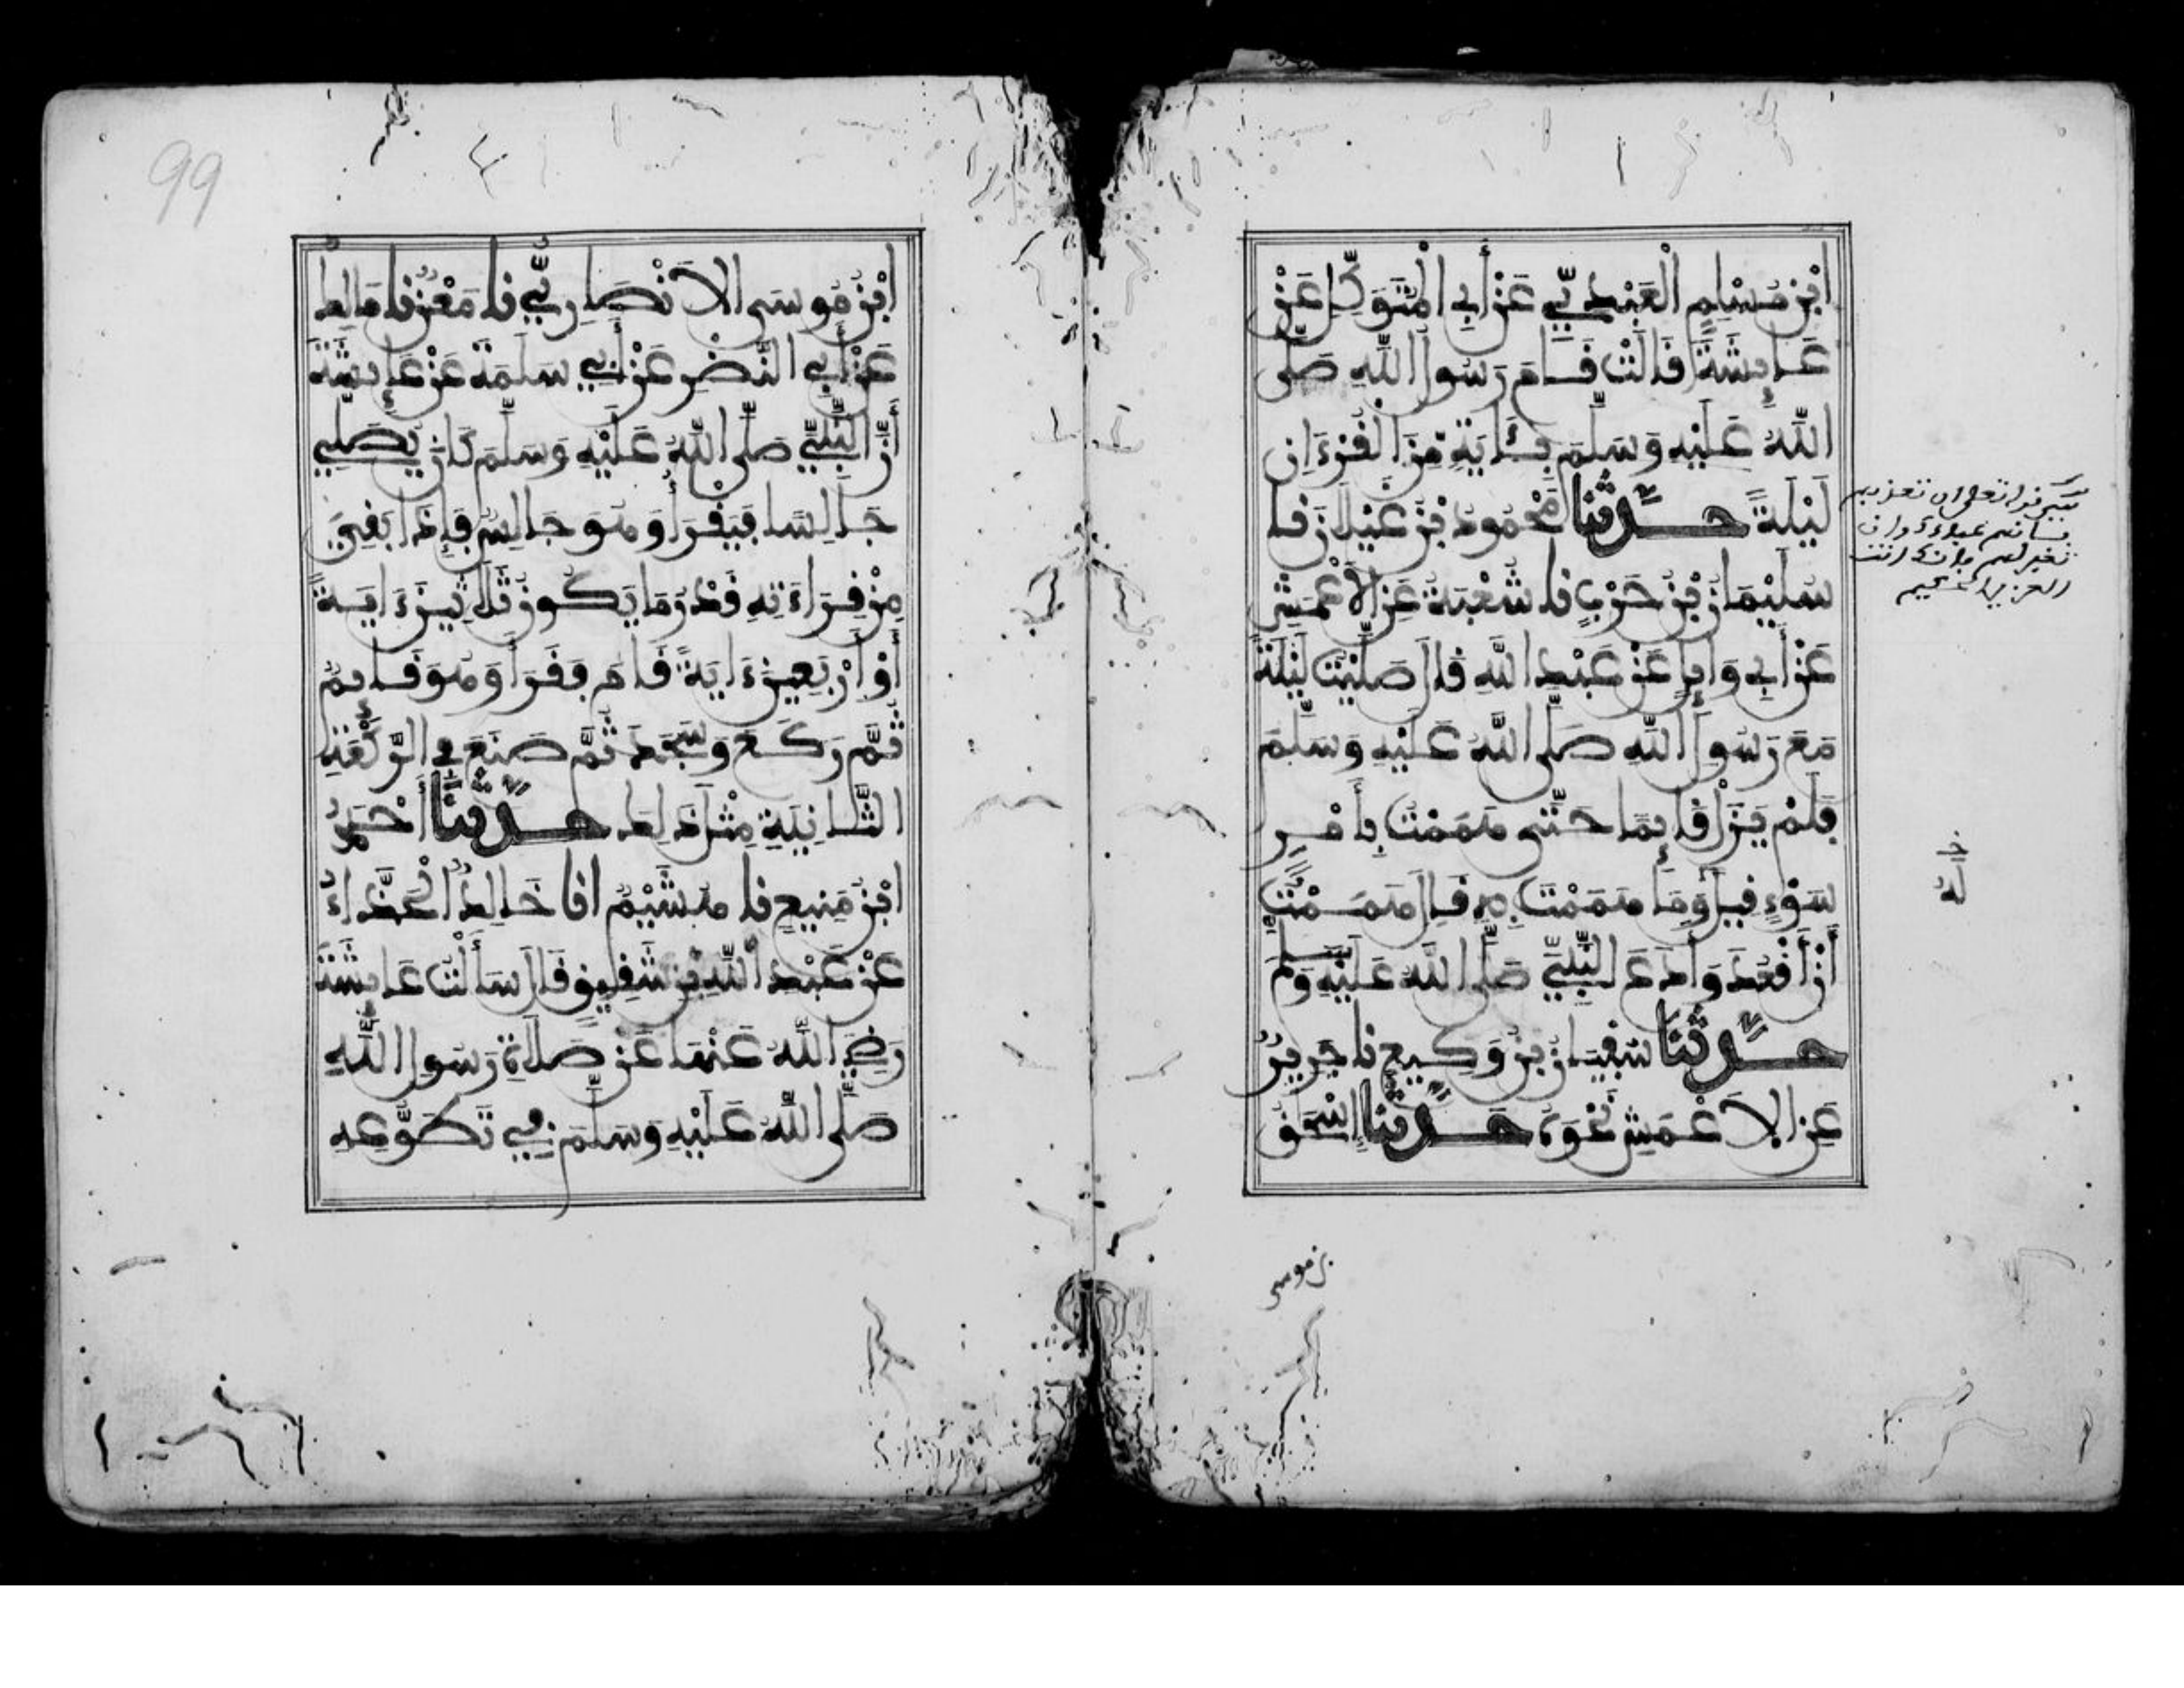 ابْنِ مُسْلِمٍ الْعَبْدِيِّ عَنْ أَبِي الْمُتَوَكِّلِ عَنْ
عَائِشَةَ قَالَتْ قَامَ رَسُولُ اللَّهِ صَلَّى
اللَّهُ عَلَيْهِ وَسَلَّمَ بِئَايَةٍ مِّنَ الْقُرْءَانِ
لَيْلَةً حَدَّثَنَا مَحْمُودُ بْنُ غَيْلَانَ نا
سُلَيْمَانُ بْنُ حَرْبٍ نا شُعْبَةُ عَنِ الْأَعْمَشِ
عَنْ أَبِي وَائِلٍ عَنْ عَبْدِ اللَّهِ قَالَ صَلَّيْتُ لَيْلَةً
مَعَ رَسُولِ اللَّهِ صَلَّى اللَّهُ عَلَيْهِ وَسَلَّمَ
فَلَمْ يَزَلْ قَائِمًا حَتَّى هَمَمْتُ بِأَمْرِ
سَوْءٍ قِيلَ وَمَا هَمَمْتَ بِهِ قَالَ هَمَمْتُ
أَنْ أَقْعُدَ وَأَدَعَ النَّبِيَّ صَلَّى اللَّهُ عَلَيْهِ وَسَلَّمَ
حَدَّثَنَا سُفْيَانُ بْنُ وَكِيعٍ نا جَرِيرٌ
عَنِ الْأَعْمَشِ نَحْوَهُ حَدَّثَنَا إِسْحَقُ
بن موسى
ان تعذبهم
فانهم عبادك وان
تغفر لهم فانك انت
العزيز الحكيم
لَهُ
99
ابْنُ مُوسَى الْأَنْصَارِيُّ نا مَعْنٌ نا مَالِكٌ
عَنْ أَبِي النَّضْرِ عَنْ أَبِي سَلَمَةَ عَنْ عَائِشَةَ
أَنَّ النَّبِيَّ صَلَّى اللَّهُ عَلَيْهِ وَسَلَّمَ كَانَ يُصَلِّي
جَالِسًا فَيَقْرَأُ وَهُوَ جَالِسٌ فَإِذَا بَقِيَ
مِنْ قِرَاءَتِهِ قَدْرُ مَا يَكُونُ ثَلَاثِينَ ءَايَةً
أَوْ أَرْبَعِينَ ءَايَةً قَامَ فَقَرَأَ وَهُوَ قَائِمٌ
ثُمَّ رَكَعَ وَسَجَدَ ثُمَّ صَنَعَ فِي الرَّكْعَةِ
الثَّانِيَةِ مِثْلَ ذَلِكَ حَدَّثَنَا أَحْمَدُ
ابْنُ مَنِيعٍ نا هُشَيْمٌ انا خَالِدٌ الْحَذَّاءُ
عَنْ عَبْدِ اللَّهِ بْنِ شَقِيقٍ قَالَ سَأَلْتُ عَائِشَةَ
رَضِيَ اللَّهُ عَنْهَا عَنْ صَلَاةِ رَسُولِ اللَّهِ
صَلَّى اللَّهُ عَلَيْهِ وَسَلَّمَ فِي تَطَوُّعِهِ